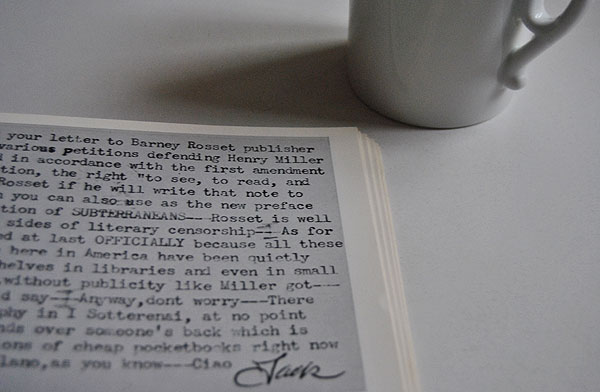 your letter to Barney Rosset publisher
various petitions defending Henry Miller
in accordance with the first amendment
tion, the right "to see, to read, and
Rosset if he will write that note to
you can also use as the new preface
tion of SUBTERRANEANS---Rosset is well
sides of literary censorship-- As for
ed at last OFFICIALLY because all these
here in America have been quietly
helves in libraries and even in small
,without publicity like Miller got---
d say--Anyway,dont worry---There
phy in I Sotterenai, at no point
nds over someone's back which is
ons of cheap pocketbooks right now
lano,as you know---Ciao Jack